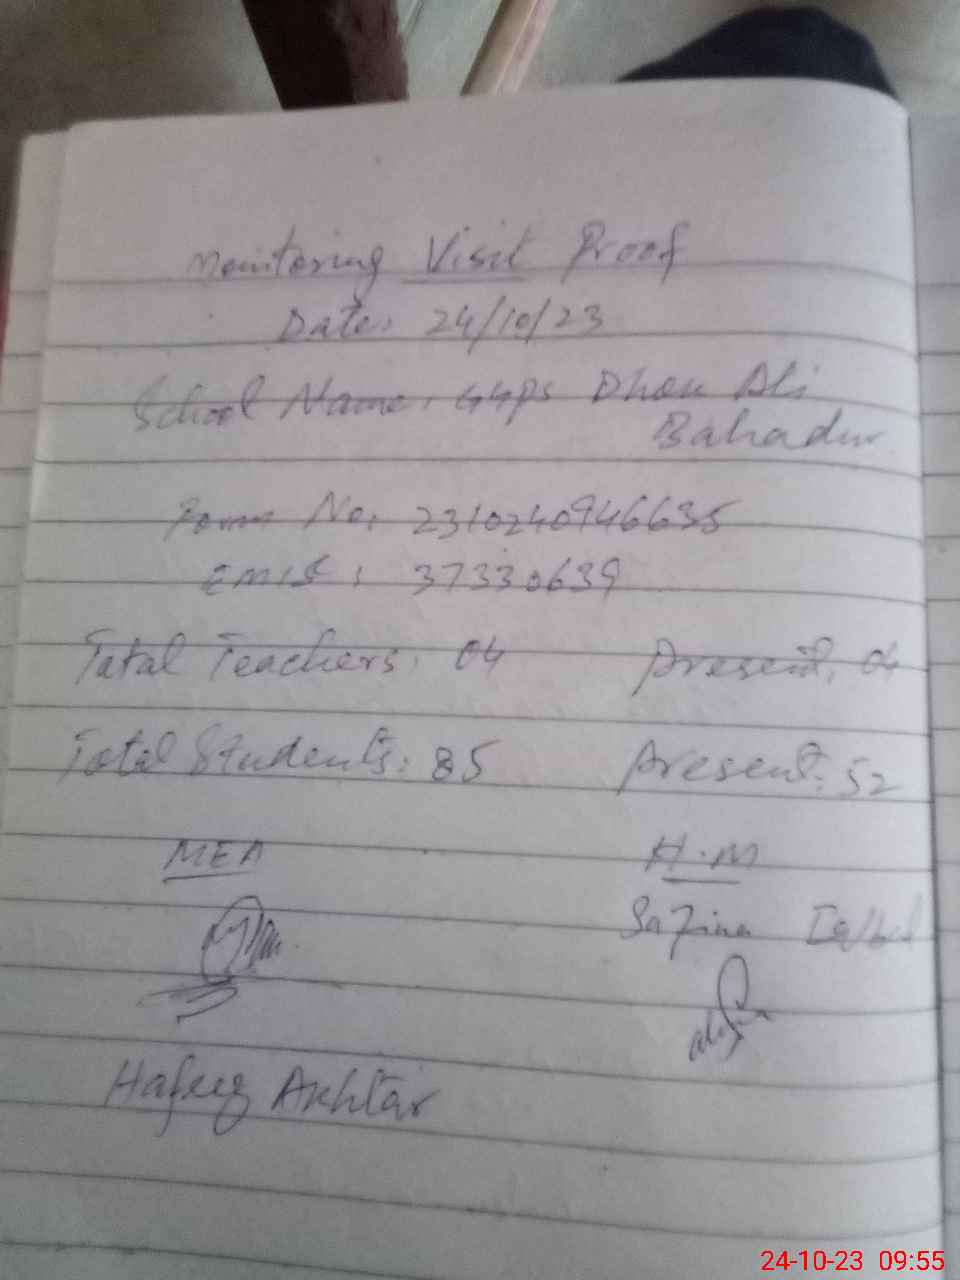 Monitoring Visit Proof
Date: 24/10/23
School Name: GGPS Dhou Ali
Bahadur
Form No. 2310240946635
EMIS: 37330639
Total Teachers: 04 Present: 04
Total Students: 85 Present: 52
MEA H.M
Safina Iqbal
Hafeez Akhtar
24-10-23 09:55